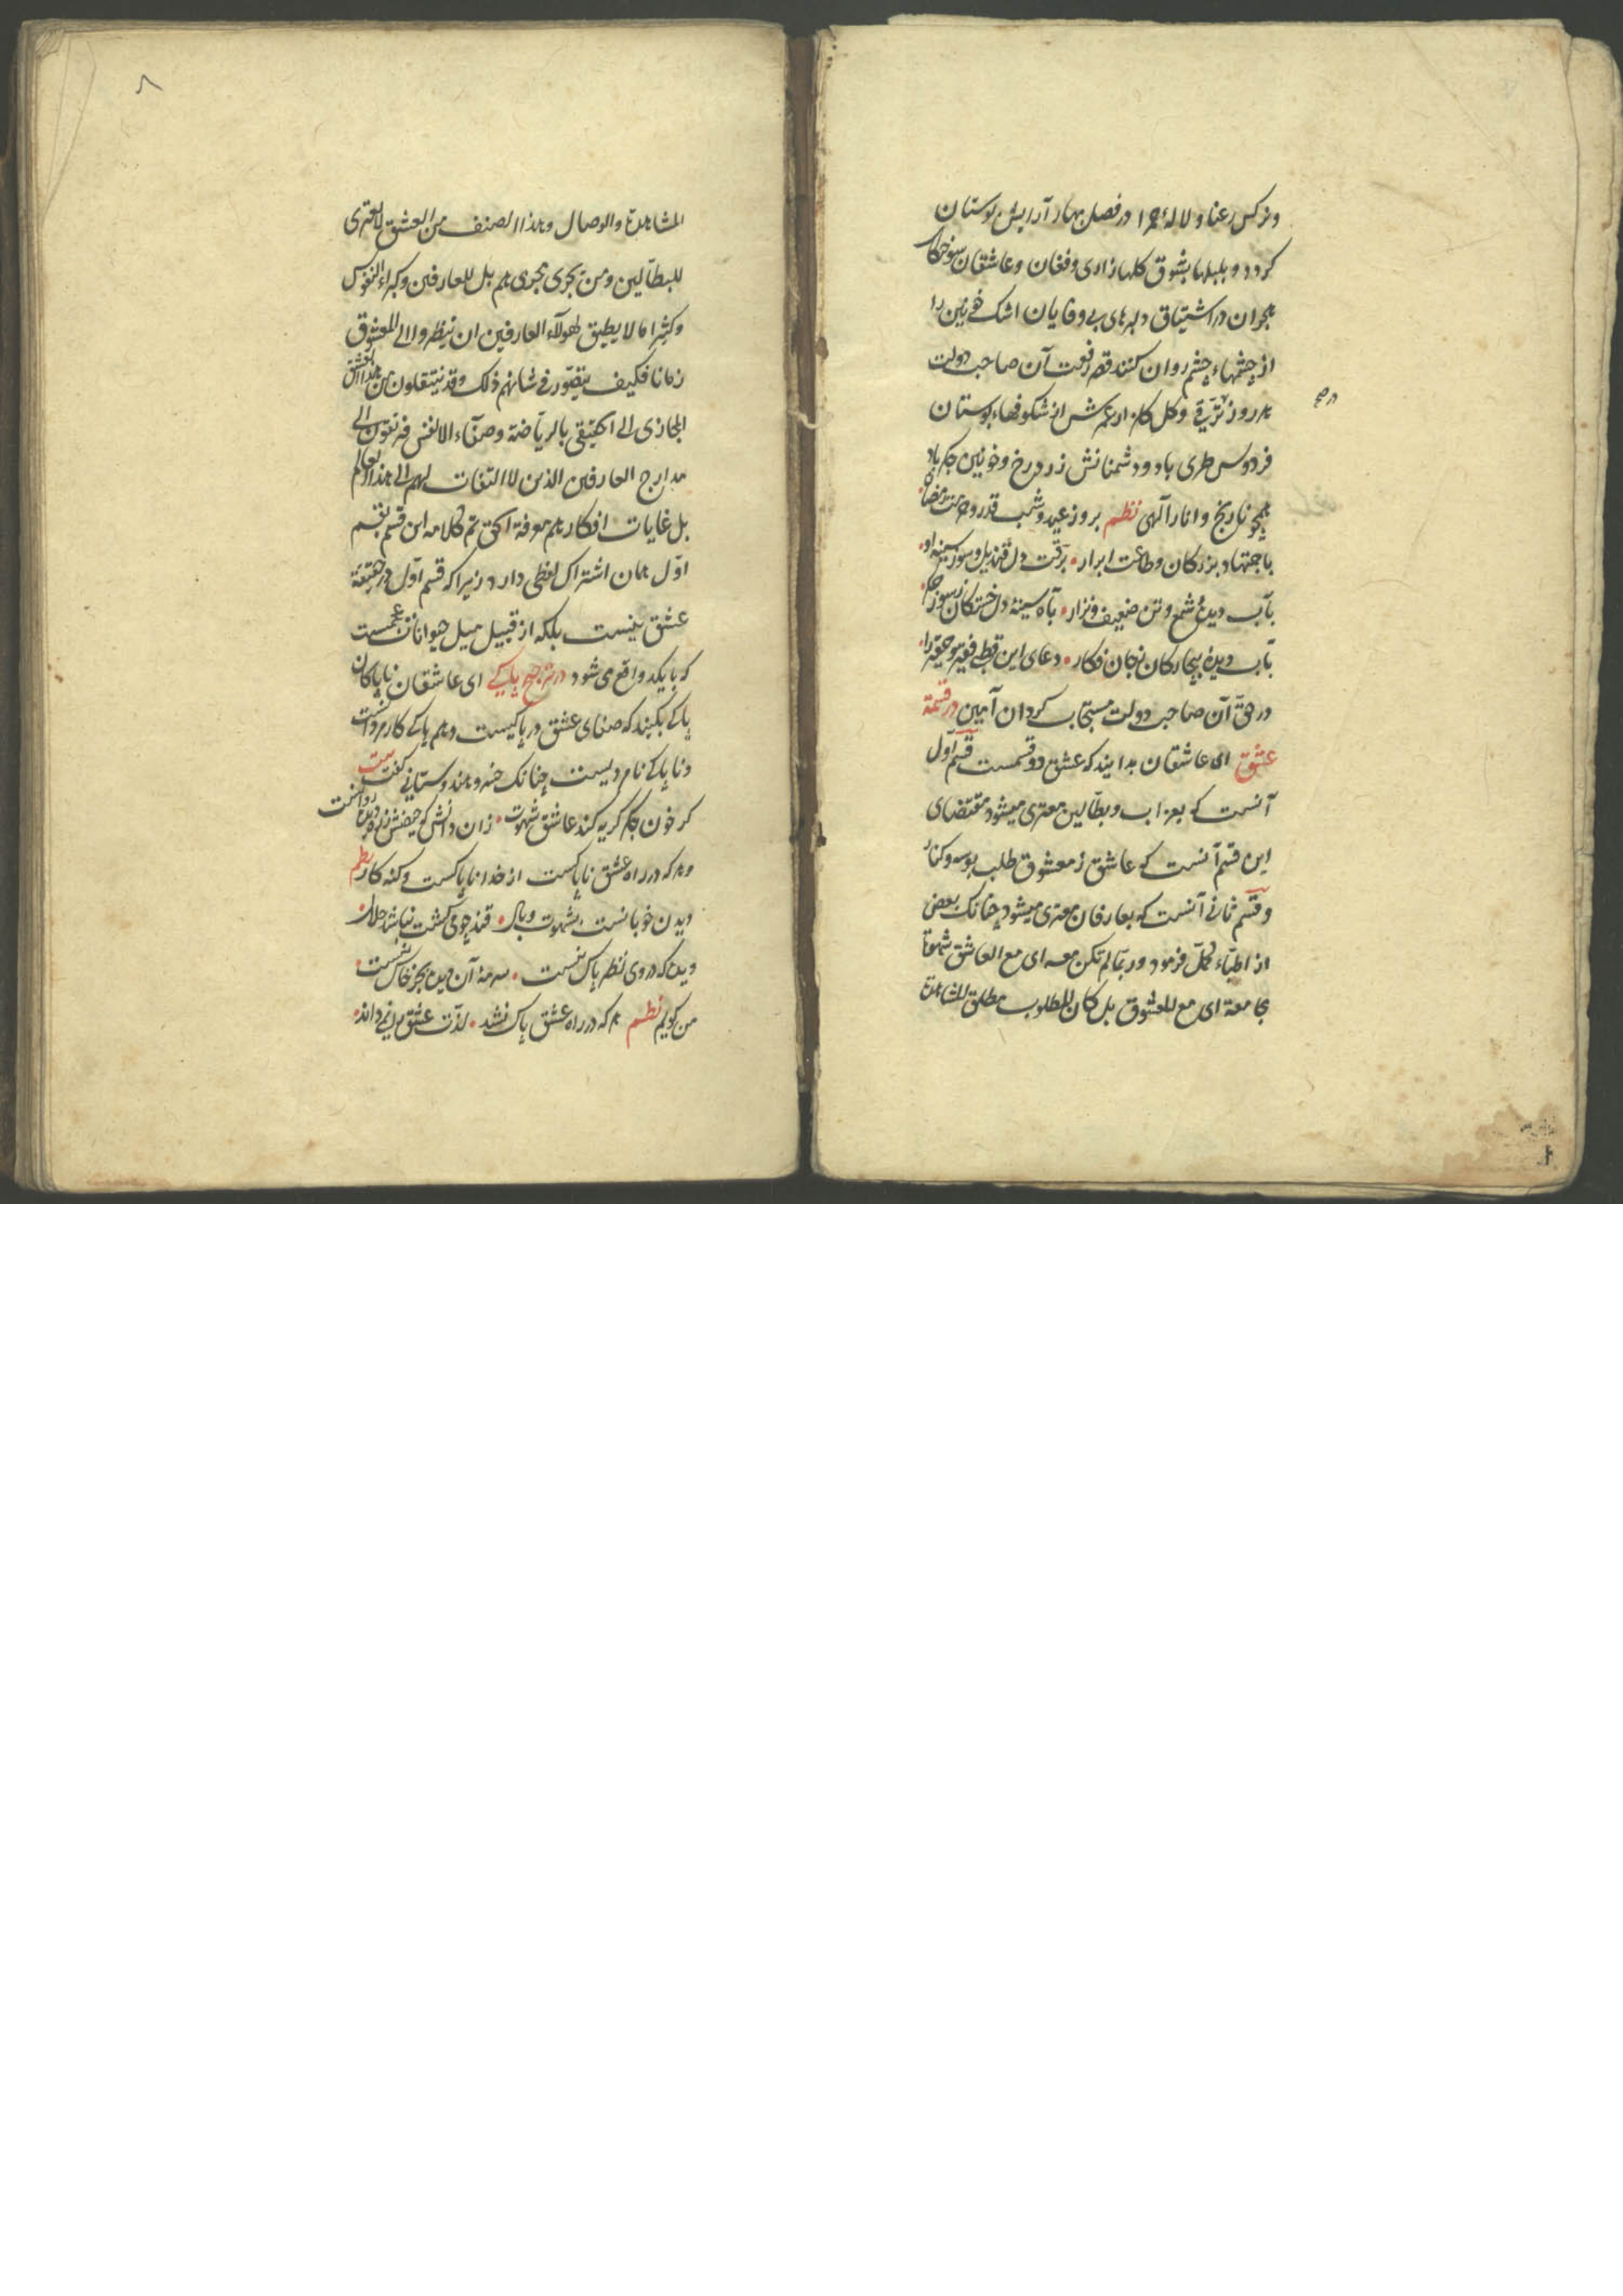 ونرکس رعنا ولالهٔ حمرا در فصل بهار آرایش بوستان
کردد و بلبلها بشوق کلها زاری وفغان وعاشقان
هجران در اشتیاق دلبرهای بی وفایان اشک خونین را
از چشمهاء چشم روان کنند قصر رفعت آن صاحب دولت
هر روز در ترقی وکل کلزار عمرش از شکوفهاء بوستان
در صح
فردوس طری باد ودشمنانش زرد رخ وخونین جکر باد
همچو نارنج وانار آلهی نظم بروز عید وشب قدر وحرمت رمضان
باجتهاد بزرکان وطاعت ابرار برقت دل قندیل وسوز سینهٔ او
بآب دیدهٔ شمع وتن ضعیف ونزار بآه سینهٔ دل خستکان ز سوز جکر
بآب دیدهٔ بیچارکان ز جان فکار دعای این فقیر را
در حق آن صاحب دولت مستجاب کردان آمین در قسمة
عشق ای عاشقان بدانید که عشق دو قسمست قسم اول
آنست که بعزاب وبطالین معتری میشود مقتضای
این قسم آنست که عاشق ز معشوق طلب بوسه وکنار
وقسم ثانی آنست که بعارفان معتری میشود چنانک بعض
از اطباء کمّل فرمود وربما لم تکن معه ای مع العاشق شهوة
مجامعة ای مع المعشوق بل کان المطلوب مطلق المشاهدة
٨
المشاهدة والوصال وهذا الصنف من العشق لا یعتری
للبطالین ومن یجری مجری هم بل للعارفین وکبراء النفوس
وکثیرا ما لا یطیق لهولاء العارفین ان ینظروا الی المعشوق
زمانا فکیف یتصور فی شانهم ذلک وقد ینتقلون من هذا العشق
المجازی الی الحقیقی بالریاضة وصفاء الانفس فیرتقون الی
مدارج العارفین الذین لا التفات لهم الی هذا العالم
بل غایات افکارهم معرفة الحق تم کلامه این قسم بقسم
اول همان اشتراک لفظی دارد زیرا که قسم اول در حقیقة
عشق نیست بلکه از قبیل میل حیوانات عجمست
که با یکدیکر واقع می شود در ترجیح پاکی ای عاشقان ناپاکان
پاکی بکنید که صفای عشق در پاکیست وهم پاکی کار مردانست
وناپاکی نام دیست چنانک خسرو هندوستانی کفت بیت
کر خون جکر کریه کند عاشق شهوت زان دانش که حیضش ز ره دیده روانست
وهر که در راه عشق ناپاکست از خدا ناپاکست وکنه کار نظم
دیدن خوبانست بشهوت وبال قند چو می کشت نباشد حلال
دیده که در وی نظر پاک نیست سرمهٔ آن دیده بجز خاک نیست
من کویم نظم هر که در راه عشق پاک نشد لذت عشق را نمی داند